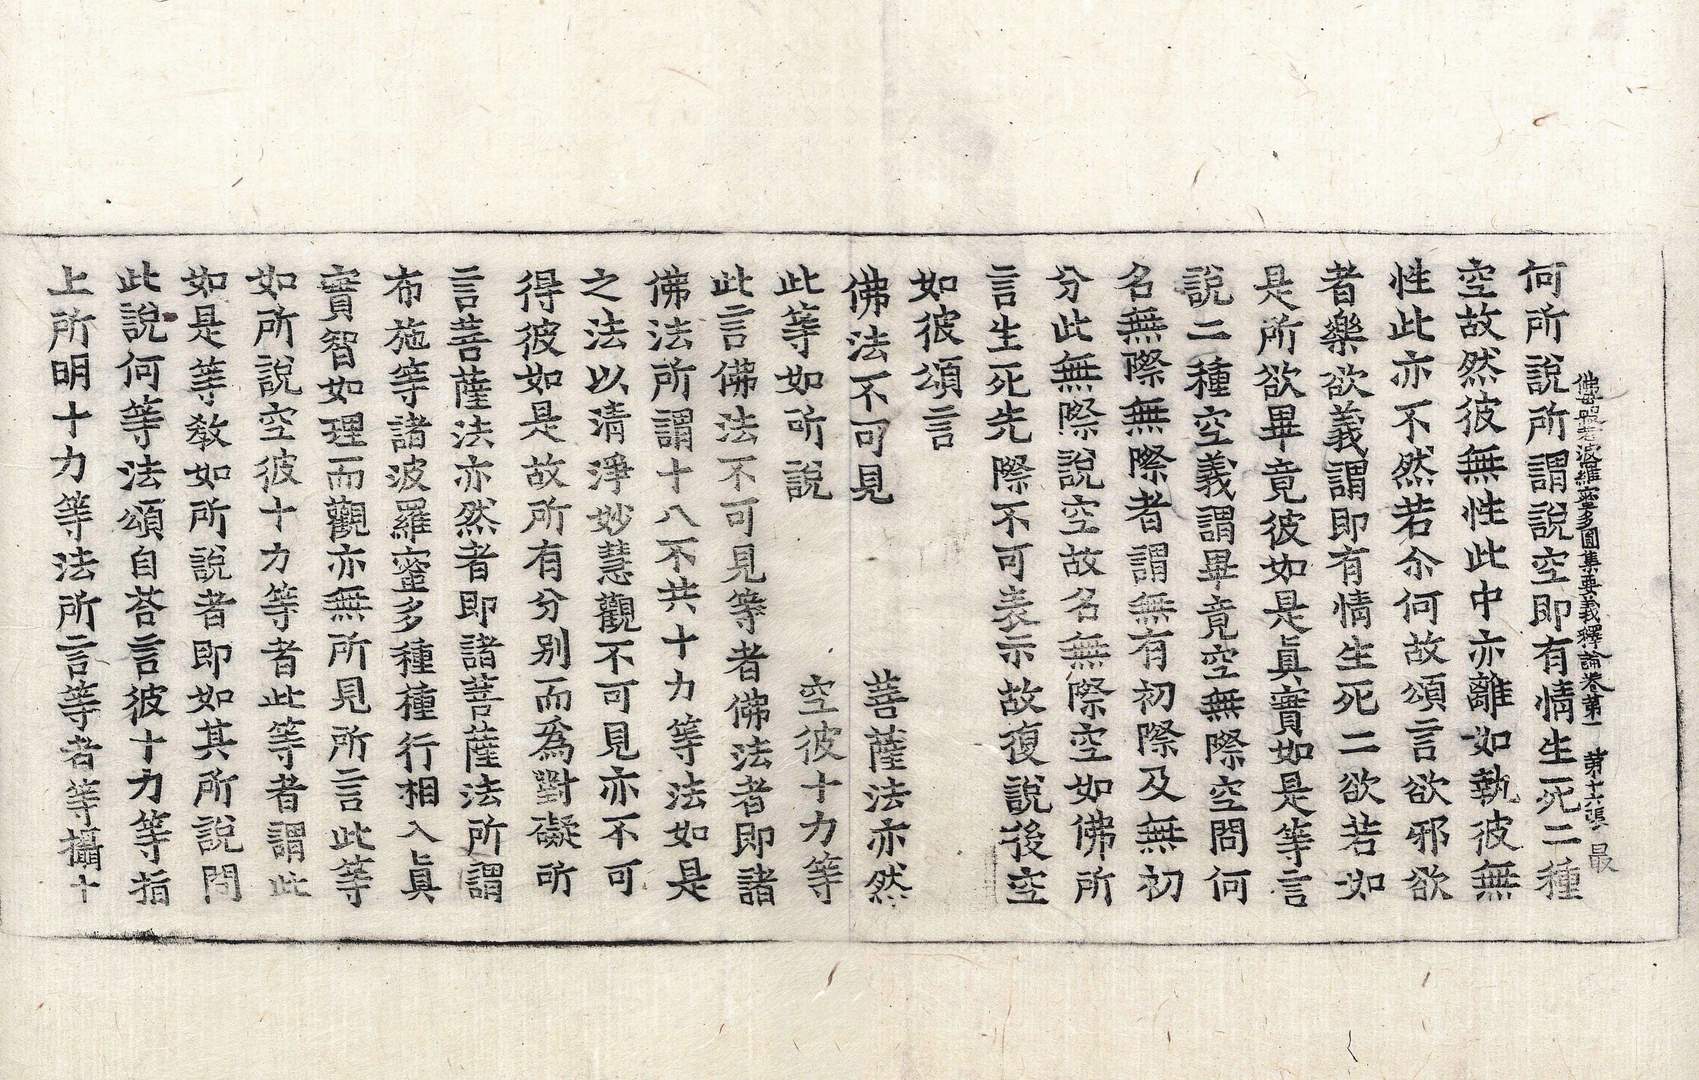 佛母般若波羅蜜多圓集要義釋論卷第一 第十六張 最
何所說所謂說空即有情生死二種
空故然彼無性此中亦離如執彼無
性此亦不然若尒何故頌言欲邪欲
者樂欲義謂即有情生死二欲若如
是所欲畢竟彼如是眞實如是等言
說二種空義謂畢竟空無際空問何
名無際無際者謂無有初際及無初
分此無際說空故名無際空如佛所
言生死先際不可表示故復說後空
如彼頌言
佛法不可見 菩薩法亦然
此等如所說 空彼十力等
此言佛法不可見等者佛法者即諸
佛法所謂十八不共十力等法如是
之法以清淨妙慧觀不可見亦不可
得彼如是故所有分別而爲對礙所
言菩薩法亦然者即諸菩薩法所謂
布施等諸波羅蜜多種種行相入眞
實智如理而觀亦無所見所言此等
如所說空彼十力等者此等者謂此
如是等教如所說者即如其所說問
此說何等法頌自荅言彼十力等指
上所明十力等法所言等者等攝十